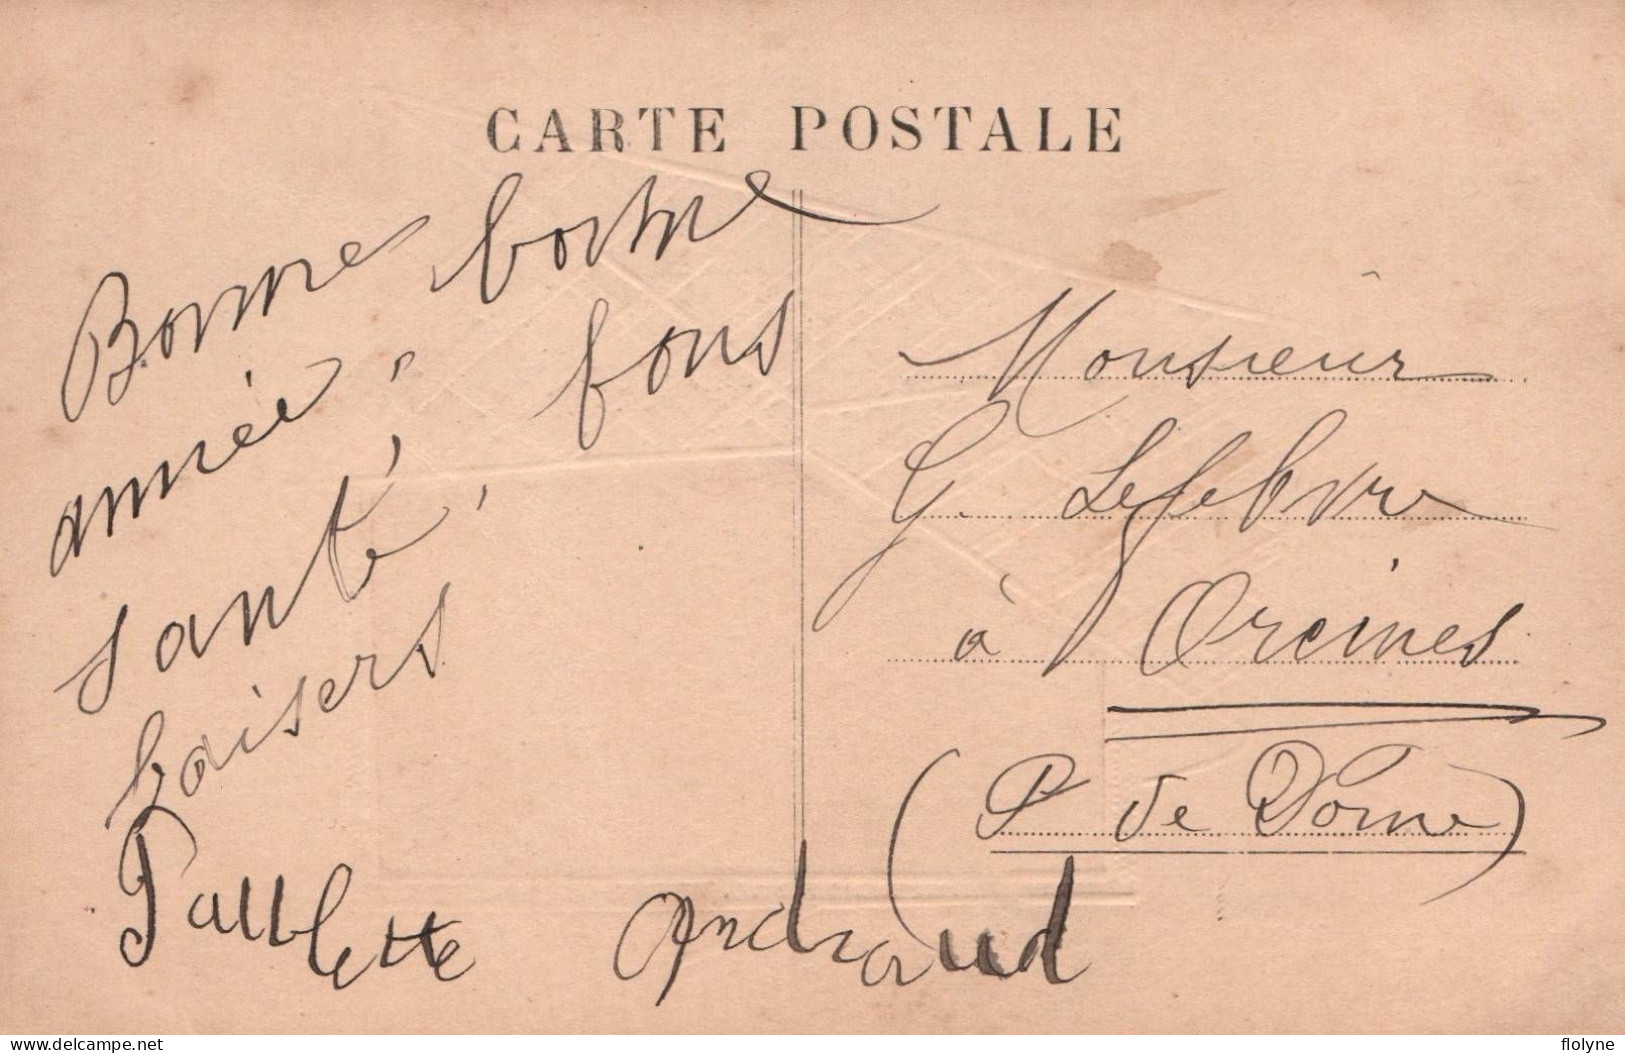 CARTE POSTALE
Bonne
année, bonne
santé, bons
baisers
Paulette Andraud
Monsieur
G. Lefebvre
à Orcines
(P. de Dome)
delcampe.net
flolyne